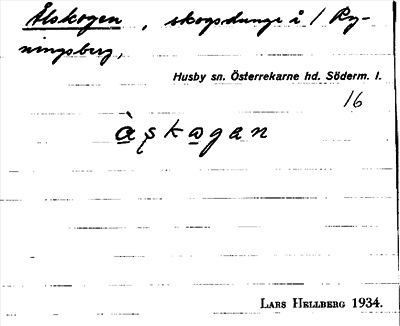 Ålskogen, skogsdunge å 1 Ry-
ningsberg,
Husby sn. Österrekarne hd. Söderm. l.
16
àʂkagan
LARS HELLBERG 1934.